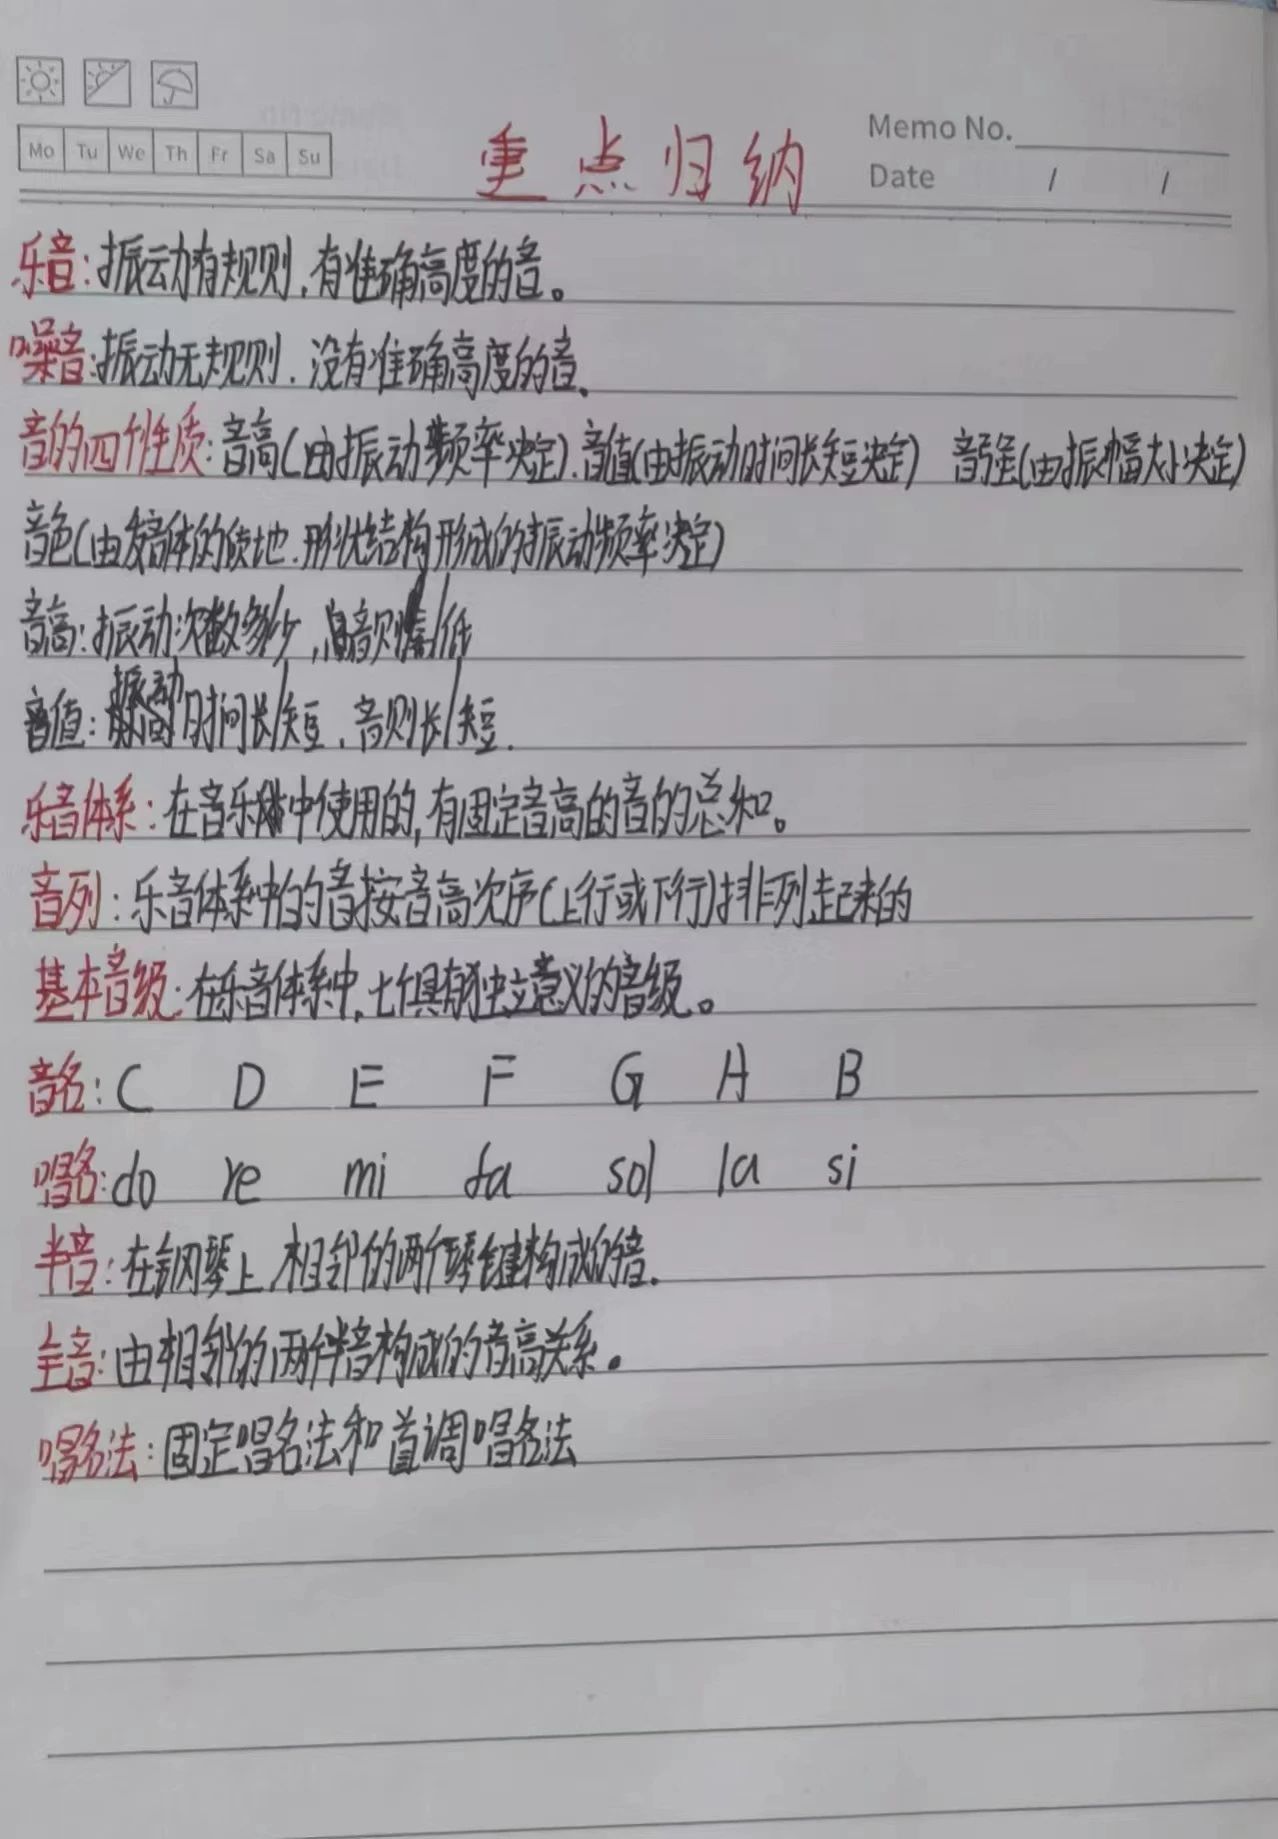 Mo Tu We Th Fr Sa Su
重点归纳
Memo No.
Date / /
乐音：振动有规则，有准确高度的音。
噪音：振动无规则，没有准确高度的音。
音的四个性质：音高(由振动频率决定).音值(由振动时间长短决定) 音强(由振幅大小决定)
音色(由发音体的质地.形状结构形成的振动频率决定)
音高：振动次数多/少，音则高/低
音值：振动时间长/短，音则长/短.
乐音体系：在音乐中使用的，有固定音高的音的总和。
音列：乐音体系中的音按音高次序(上行或下行)排列起来的
基本音级：在乐音体系中，七个具有独立意义的音级。
音名：C D E F G A B
唱名：do re mi fa sol la si
半音：在钢琴上相邻的两个琴键构成的音.
全音：由相邻的两个半音构成的音高关系。
唱名法：固定唱名法和首调唱名法